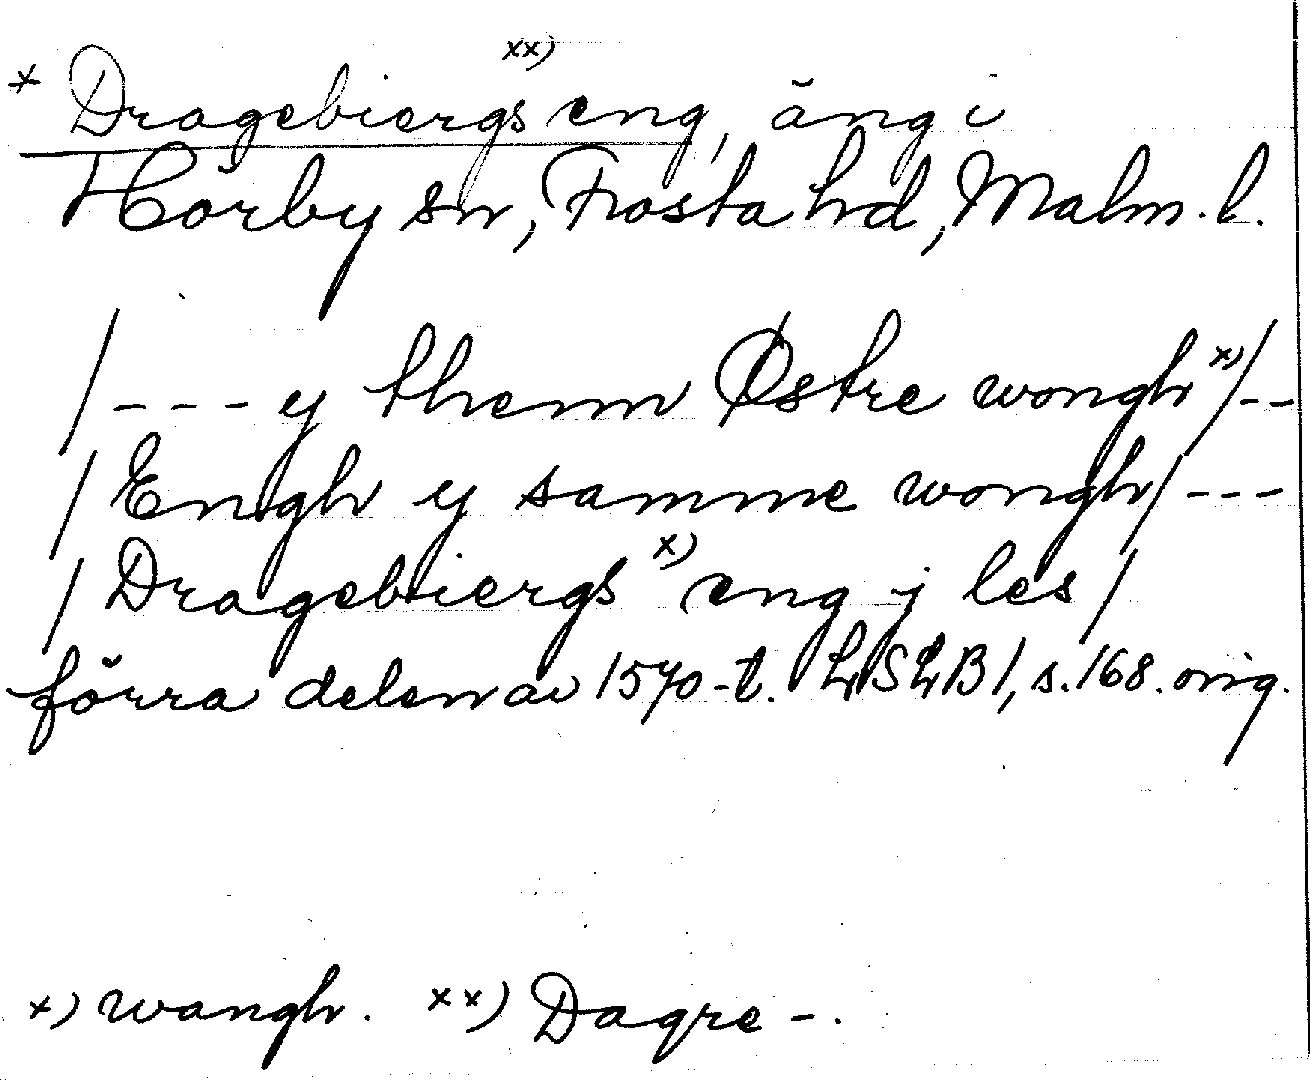 * Dragebiergs xx) eng, äng i
Hörby sn, Frosta hd, Malm. l.
/--- y thenn Østre wongh x)/--
/Engh y samme wongh/---
/Dragebiergs x) eng j les/
förra delen av 1570-t. LSLB1, s. 168. orig.
x) wangh. xx) Dagre-.